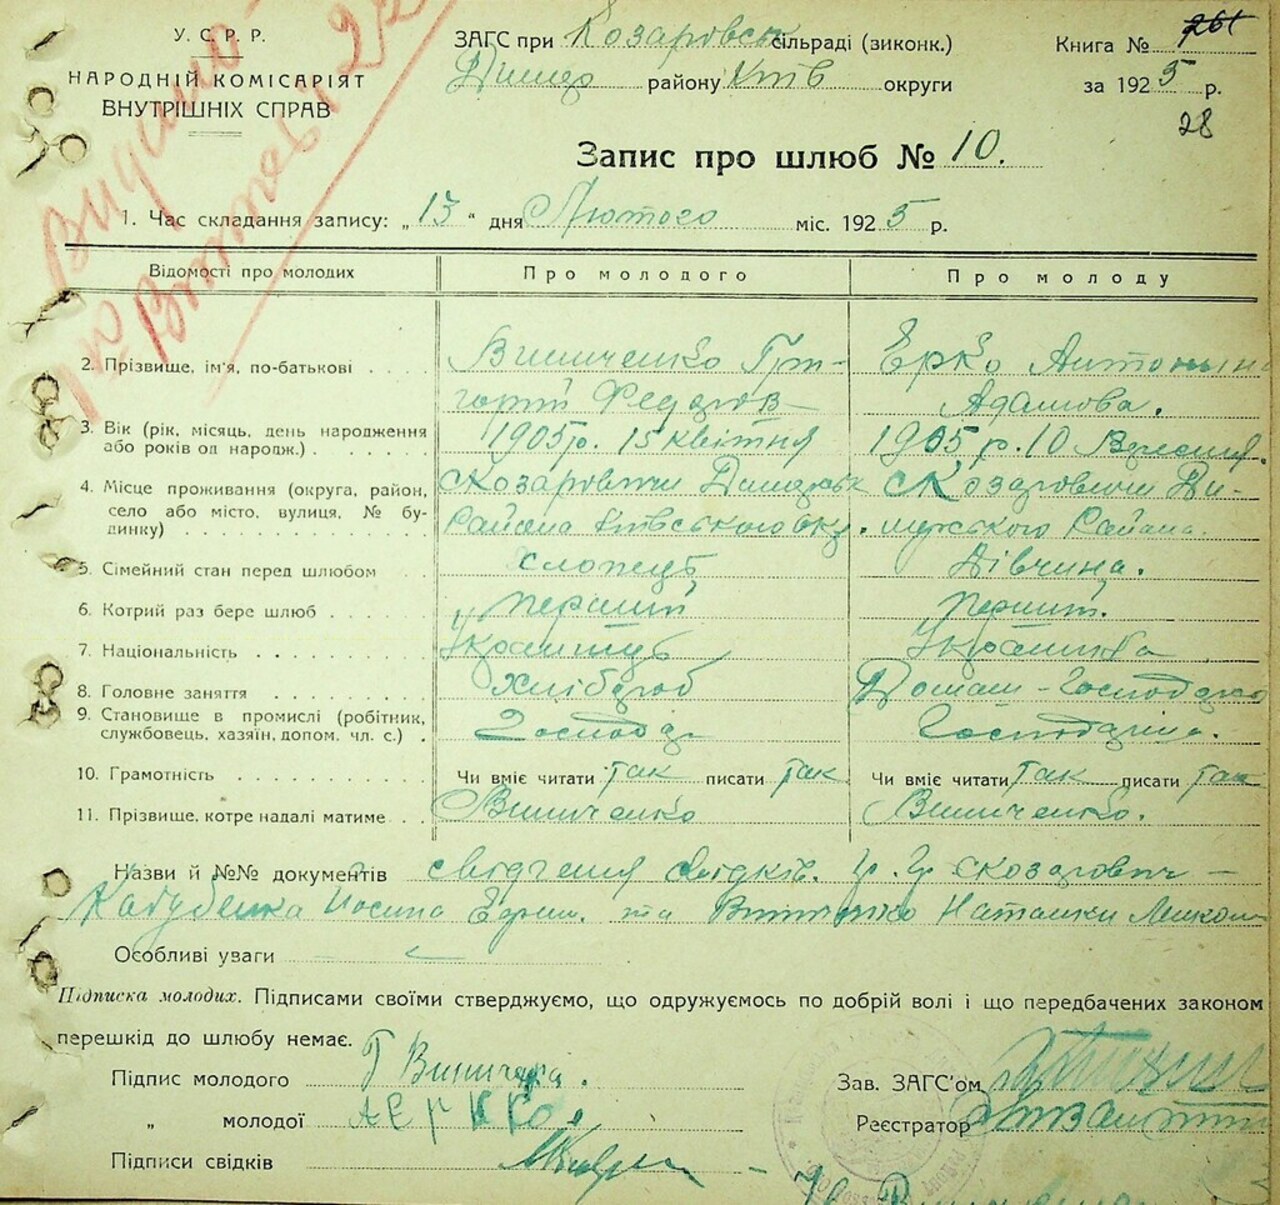 У.С.Р.Р.
НАРОДНІЙ КОМІСАРІЯТ
ВНУТРІШНІХ СПРАВ
ЗАГС при Козаровськ сільраді (виконк.)
Димер району Київ округи
Книга № 261
за 1925 р.
28
Видано
Запис про шлюб № 10.
1. Час складання запису: „13“ дня Лютого міс. 1925 р.
Відомості про молодих Про молодого Про молоду
2. Прізвище, ім'я, по-батькові Винниченко Гри- Ерко Антонина
горій Федоров Адамова.
3. Вік (рік, місяць, день народження 1905 р. 15 квітня 1905 р. 10 Вересня.
або років од народж.)
4. Місце проживання (округа, район, С Козаровичи Димерськ С Козаровичи Ди-
село або місто, вулиця, № бу- Района Київського Окр. мерського Района.
динку)
5. Сімейний стан перед шлюбом Хлопець Дівчина.
6. Котрий раз бере шлюб перший перший.
7. Національність Українець Українка
8. Головне заняття Хлібороб Домаш-Господарка
9. Становище в промислі (робітник, Господар Господариня.
службовець, хазяїн, допом. чл. с.)
10. Грамотність Чи вміє читати так писати так Чи вміє читати так писати так
11. Прізвище, котре надалі матиме Винниченко Винниченко.
Назви й №№ документів свідчення свідків. гр. гр. С Козарович
Йосипа та Наталки Микол
Особливі уваги
Підписка молодих. Підписами своїми стверджуємо, що одружуємось по добрій волі і що передбачених законом
перешкід до шлюбу немає.
Підпис молодого Г
„ молодої А Еркко
Підписи свідків
Зав. ЗАГС'ом
Реєстратор